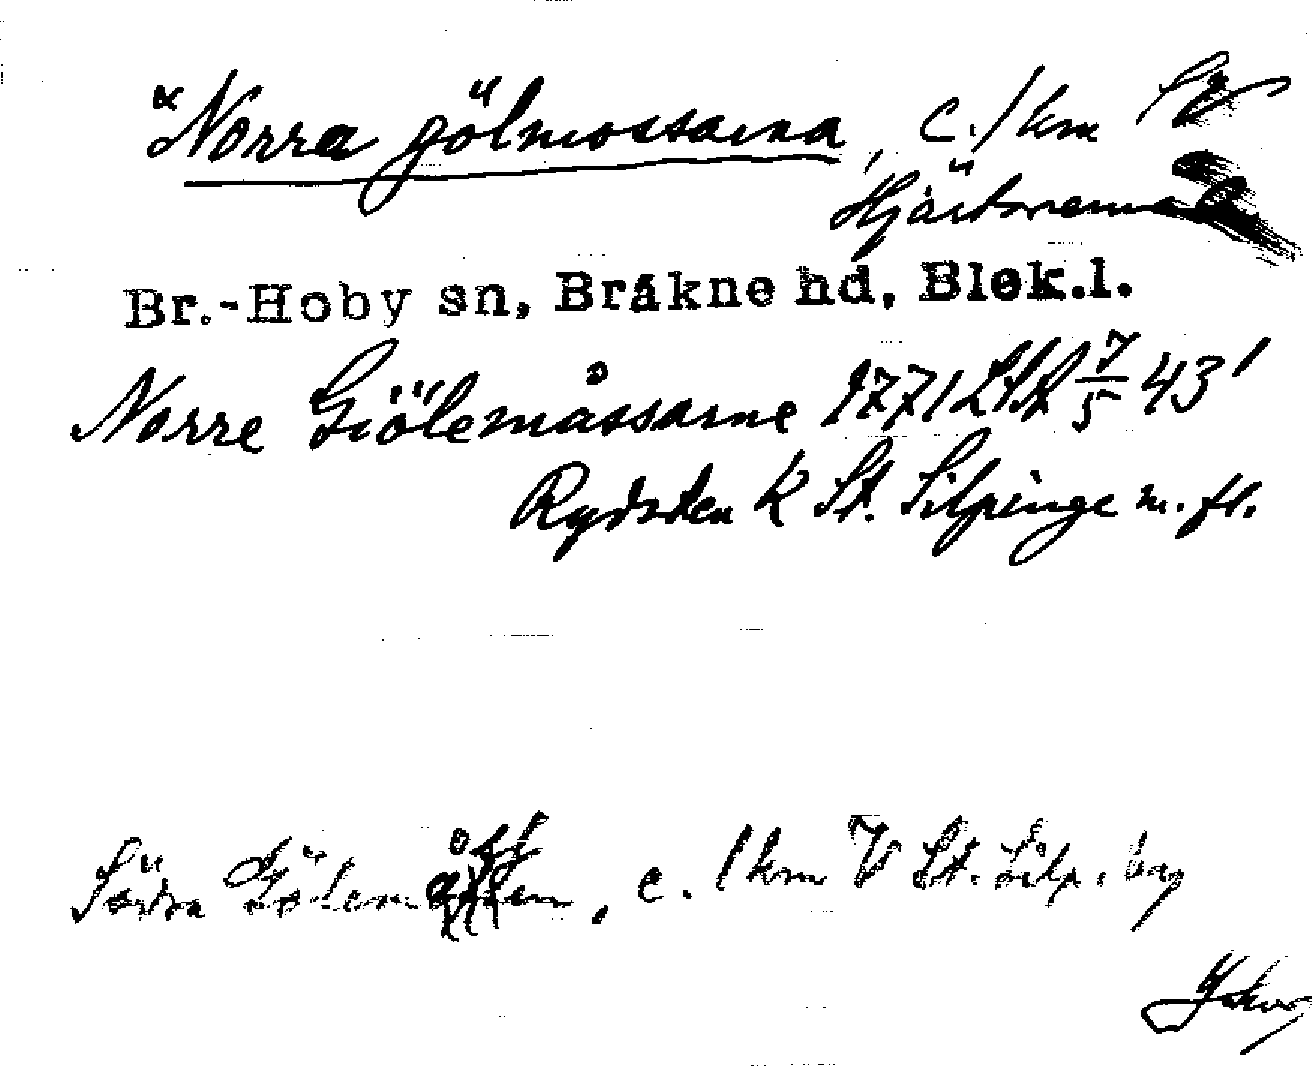 Norra gölmossarna, c. 1 km SV
Br.-Hoby sn, Bräkne hd, Blek.l.
Norre Giölemåssarne 1771 LSA 7/5 43'
Rydsten k St. Silpinge m. fl.
Södra Gölemåssen, c. 1 km V St. Silp. by